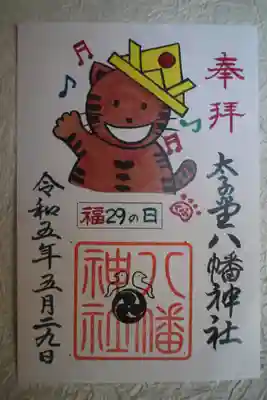 奉拝
太子堂八幡神社
福29の日
八幡
神社
令和五年五月二九日